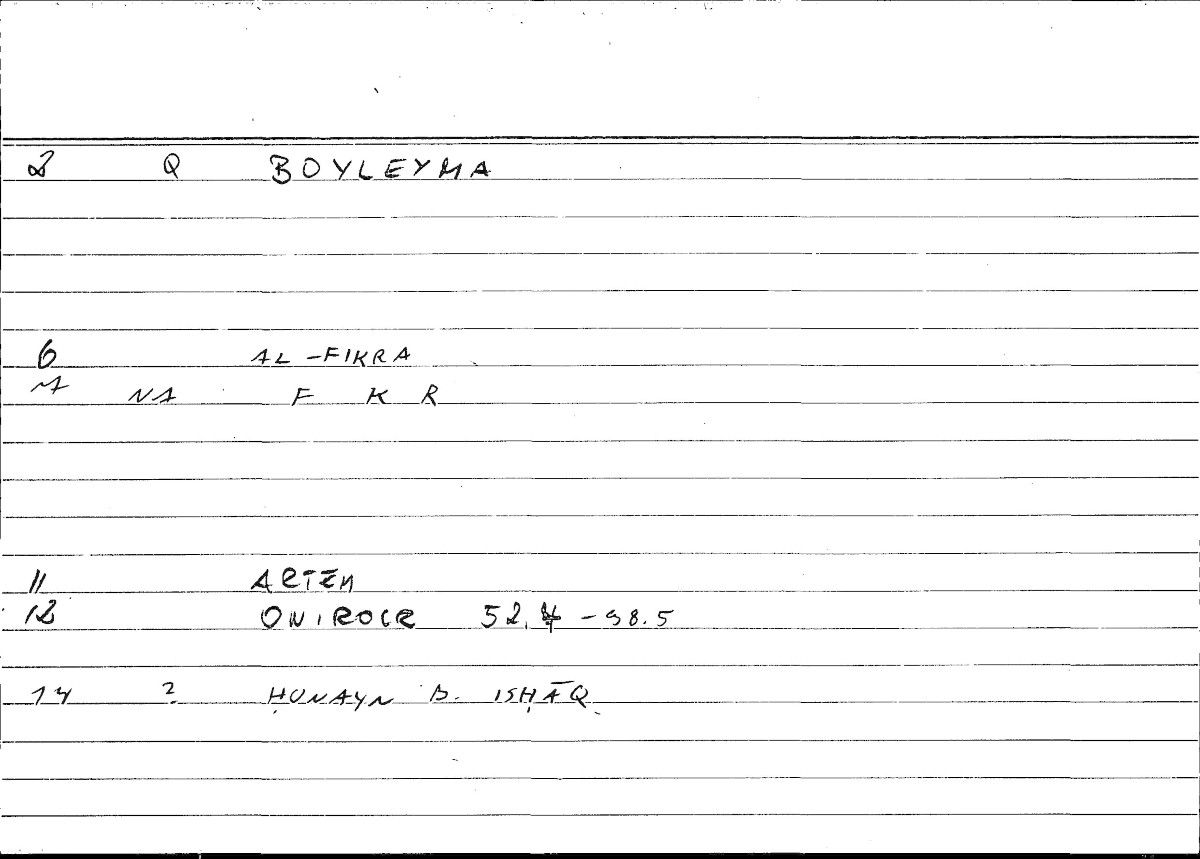 2 Q BOYLEYMA
6 AL-FIKRA
NA F K R
11 ARTEM
12 ONIROCR - 98.5
14 ? ḤUNAYN B. ISḤĀQ